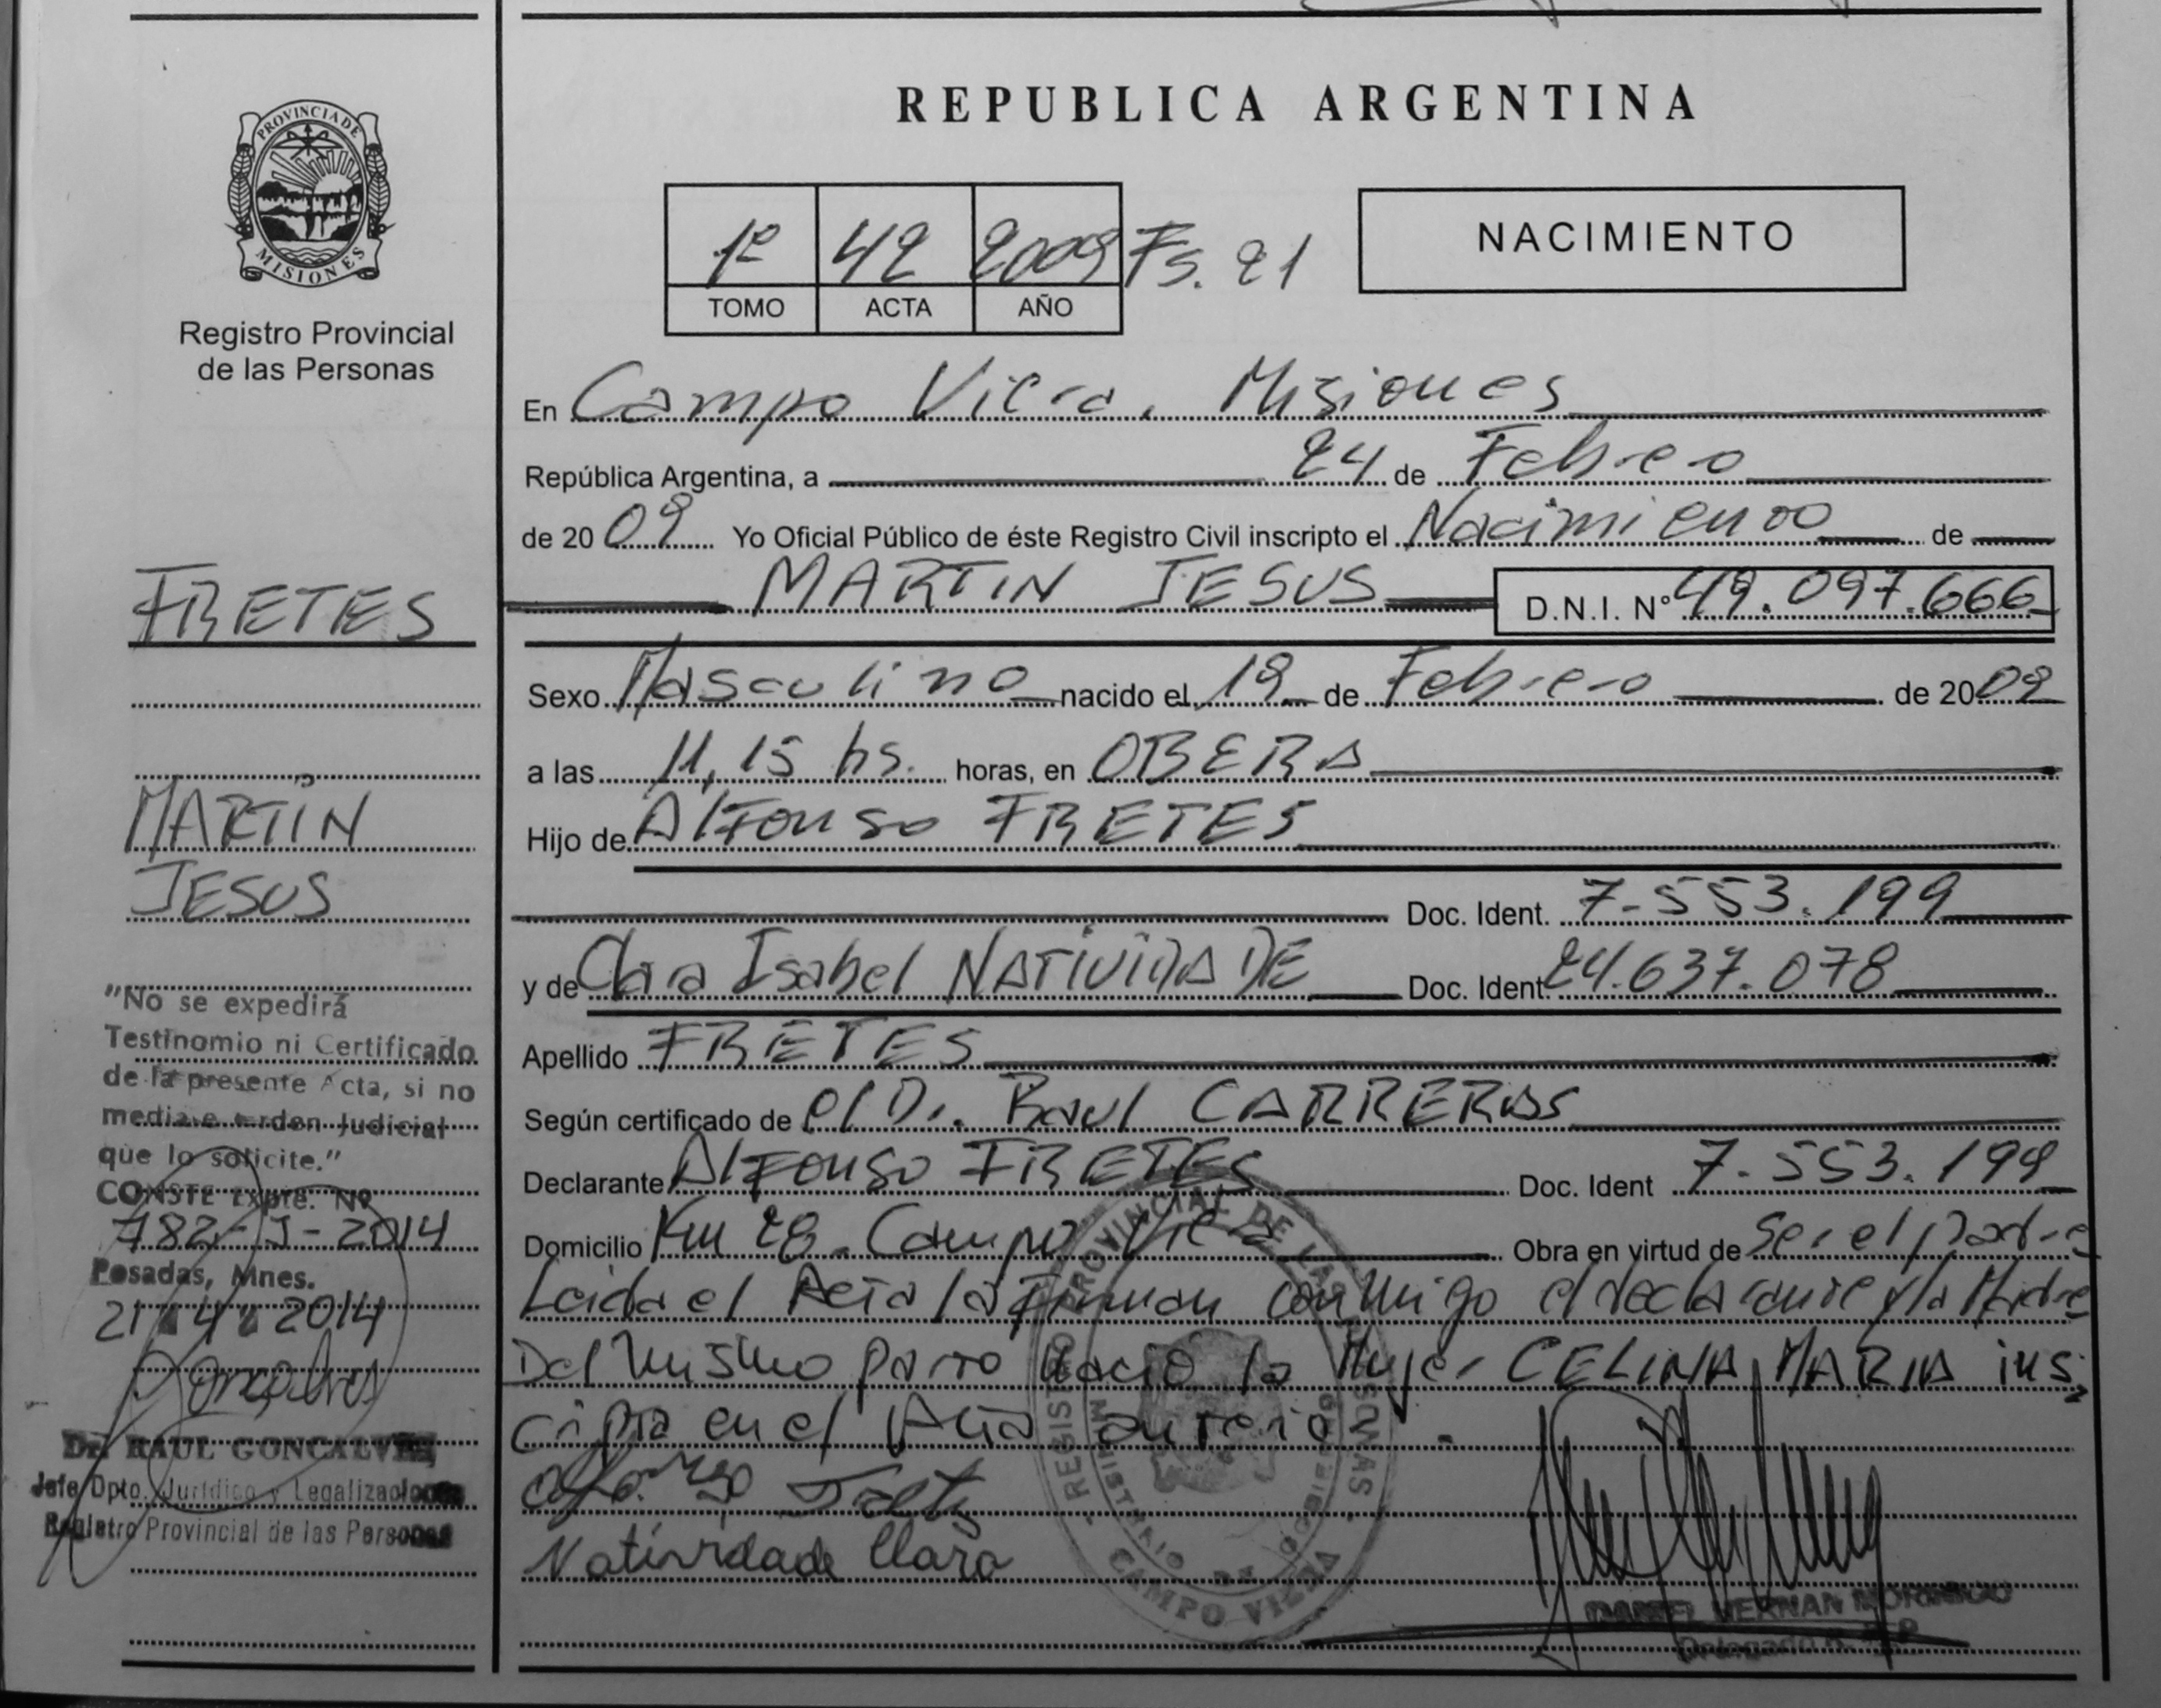 REPUBLICA ARGENTINA
PROVINCIA DE
MISIONES
Registro Provincial
de las Personas
1º 42 2009 Fs. 21
TOMO ACTA AÑO
NACIMIENTO
En Campo Viera, Misiones
República Argentina, a 24 de Febrero
de 2009 Yo Oficial Público de éste Registro Civil inscripto el Nacimiento de
MARTIN JESUS D.N.I. Nº 49.097.666
Sexo Masculino nacido el 19 de Febrero de 2009
a las 11,15 hs. horas, en OBERA
Hijo de Alfonso FRETES
Doc. Ident. 7.553.199
y de Clara Isabel NATIVIDADE Doc. Ident. 24.637.078
Apellido FRETES
Según certificado de el Dr. Raul CARRERAS
Declarante Alfonso FRETES Doc. Ident 7.553.199
Domicilio Km 28. Campo Viera Obra en virtud de Ser el padre
Leida el Acta la firman conmigo el declarante y la Madre
Del mismo parto nació la Mujer CELINA MARIA ins
cripta en el Acta anterior.
Alfonso Frete
Natividade Clara
FRETES
MARTIN
JESUS
"No se expedirá
Testinomio ni Certificado
de la presente Acta, si no
media orden Judicial
que lo solicite."
CONSTE Expte. Nº
782-J-2014
Posadas, Mnes.
21 4 2014
Dr. RAUL GONCALVES
Jefe Dpto. Jurídico y Legalizaciones
Registro Provincial de las Personas
REGISTRO PROVINCIAL DE LAS PERSONAS
MINISTERIO DE GOBIERNO
CAMPO VIERA
DANIEL HERNAN MORINIGO
Delegado R.P.P.